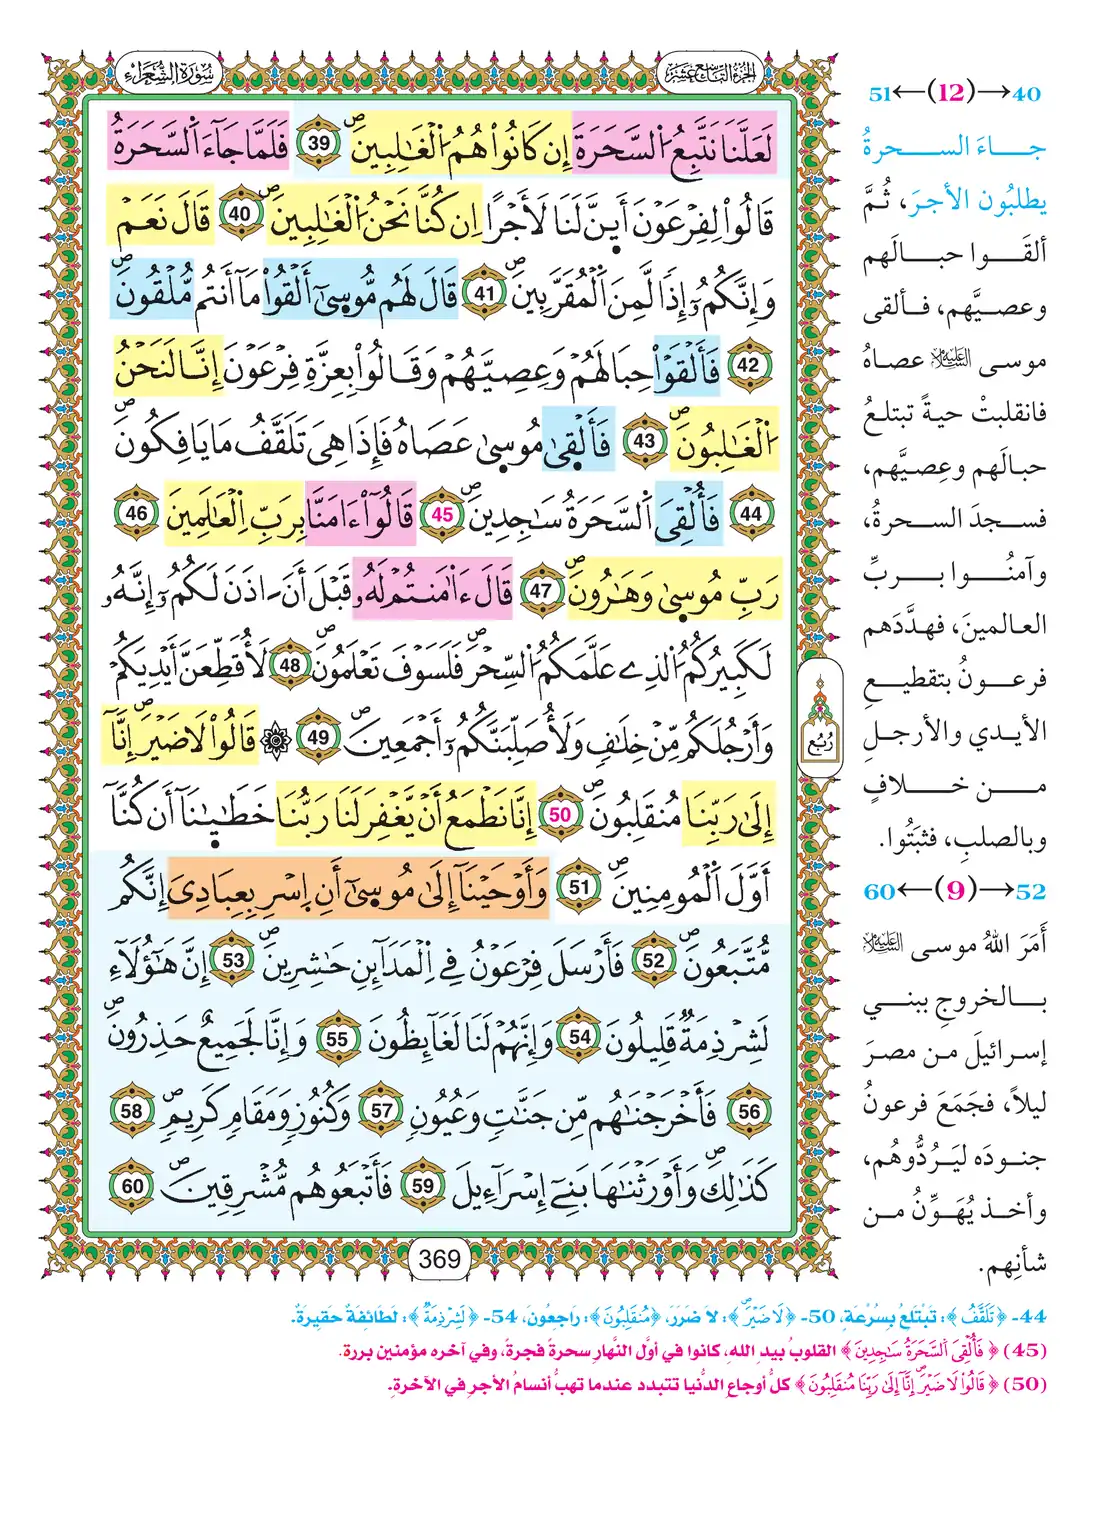 سُورَةُ الشُّعَرَاءِ
الجُزْءُ التَّاسِعُ عَشَرَ
لَعَلَّنَا نَتَّبِعُ اُ۬لسَّحَرَةَ إِن كَانُواْ هُمُ اُ۬لْغَٰلِبِينَۖ 39 فَلَمَّا جَآءَ اَ۬لسَّحَرَةُ
قَالُواْ لِفِرْعَوْنَ أَيِنَّ لَنَا لَأَجْراً اِن كُنَّا نَحْنُ اُ۬لْغَٰلِبِينَۖ 40 قَالَ نَعَمْ
وَإِنَّكُمُۥٓ إِذاٗ لَّمِنَ اَ۬لْمُقَرَّبِينَۖ 41 قَالَ لَهُم مُّوسَىٰٓ أَلْقُواْ مَآ أَنتُم مُّلْقُونَۖ
42 فَأَلْقَوْاْ حِبَالَهُمْ وَعِصِيَّهُمْ وَقَالُواْ بِعِزَّةِ فِرْعَوْنَ إِنَّا لَنَحْنُ
اُ۬لْغَٰلِبُونَۖ 43 فَأَلْقَىٰ مُوسَىٰ عَصَاهُ فَإِذَا هِيَ تَلَقَّفُ مَا يَافِكُونَۖ
44 فَأُلْقِيَ اَ۬لسَّحَرَةُ سَٰجِدِينَۖ 45 قَالُوٓاْ ءَامَنَّا بِرَبِّ اِ۬لْعَٰلَمِينَ 46
رَبِّ مُوسَىٰ وَهَٰرُونَۖ 47 قَالَ ءَا۬مَنتُمْ لَهُۥ قَبْلَ أَنَ اٰذَنَ لَكُمُۥٓ إِنَّهُۥ
لَكَبِيرُكُمُ اُ۬لذِے عَلَّمَكُمُ اُ۬لسِّحْرَۖ فَلَسَوْفَ تَعْلَمُونَۖ 48 لَأُقَطِّعَنَّ أَيْدِيَكُمْ
وَأَرْجُلَكُم مِّنْ خِلَٰفٖ وَلَأُصَلِّبَنَّكُمُۥٓ أَجْمَعِينَۖ 49 ۞ قَالُواْ لَا ضَيْرَۖ إِنَّآ
إِلَىٰ رَبِّنَا مُنقَلِبُونَۖ 50 إِنَّا نَطْمَعُ أَنْ يَّغْفِرَ لَنَا رَبُّنَا خَطَٰيَٰنَآ أَن كُنَّآ
أَوَّلَ اَ۬لْمُومِنِينَۖ 51 وَأَوْحَيْنَآ إِلَىٰ مُوسَىٰٓ أَنِ اِ۪سْرِ بِعِبَادِيَ إِنَّكُم
مُّتَّبَعُونَۖ 52 فَأَرْسَلَ فِرْعَوْنُ فِے اِ۬لْمَدَآئِنِ حَٰشِرِينَۖ 53 إِنَّ هَٰٓؤُلَآءِ
لَشِرْذِمَةٞ قَلِيلُونَ 54 وَإِنَّهُمْ لَنَا لَغَآئِظُونَ 55 وَإِنَّا لَجَمِيعٌ حَذِرُونَۖ
56 فَأَخْرَجْنَٰهُم مِّن جَنَّٰتٖ وَعُيُونٖ 57 وَكُنُوزٖ وَمَقَامٖ كَرِيمٖۖ 58
كَذَٰلِكَۖ وَأَوْرَثْنَٰهَا بَنِےٓ إِسْرَآءِيلَ 59 فَأَتْبَعُوهُم مُّشْرِقِينَۖ 60
رُبُع
369
40→(12)←51
جاءَ السحرةُ
يطلبُون الأجرَ، ثُمَّ
ألقوا حبالَهم
وعصيَّهم، فألقى
موسى عليه السلام عصاهُ
فانقلبتْ حيةً تبتلعُ
حبالَهم وعِصيَّهم،
فسجدَ السحرةُ،
وآمنُوا بربِّ
العالمينَ، فهدَّدَهم
فرعونُ بتقطيعِ
الأيدي والأرجلِ
من خلافٍ
وبالصلبِ، فثبَتُوا.
52→(9)←60
أَمَرَ اللهُ موسى عليه السلام
بالخروجِ ببني
إسرائيلَ من مصرَ
ليلاً، فجَمَعَ فرعونُ
جنودَه ليَرُدُّوهُم،
وأخذ يُهَوِّنُ من
شأنِهم.
44- ﴿تَلَقَّفُ﴾: تَبْتَلعُ بِسُرْعَةٍ، 50- ﴿لَا ضَيْرَۖ﴾: لا ضَرَرَ، ﴿مُنقَلِبُونَ﴾: رَاجِعُونَ، 54- ﴿لَشِرْذِمَةٞ﴾: لَطَائِفَةٌ حَقِيرَةٌ.
(45) ﴿فَأُلْقِيَ اَ۬لسَّحَرَةُ سَٰجِدِينَ﴾ القلوبُ بيدِ اللهِ، كانوا في أوَّل النَّهارِ سحرةً فجرةً، وفي آخره مؤمنين بررة.
(50) ﴿قَالُواْ لَا ضَيْرَۖ إِنَّآ إِلَىٰ رَبِّنَا مُنقَلِبُونَ﴾ كلُّ أوجاعِ الدُّنيا تتبدد عندما تهبُّ أنسامُ الأجرِ في الآخرةِ.